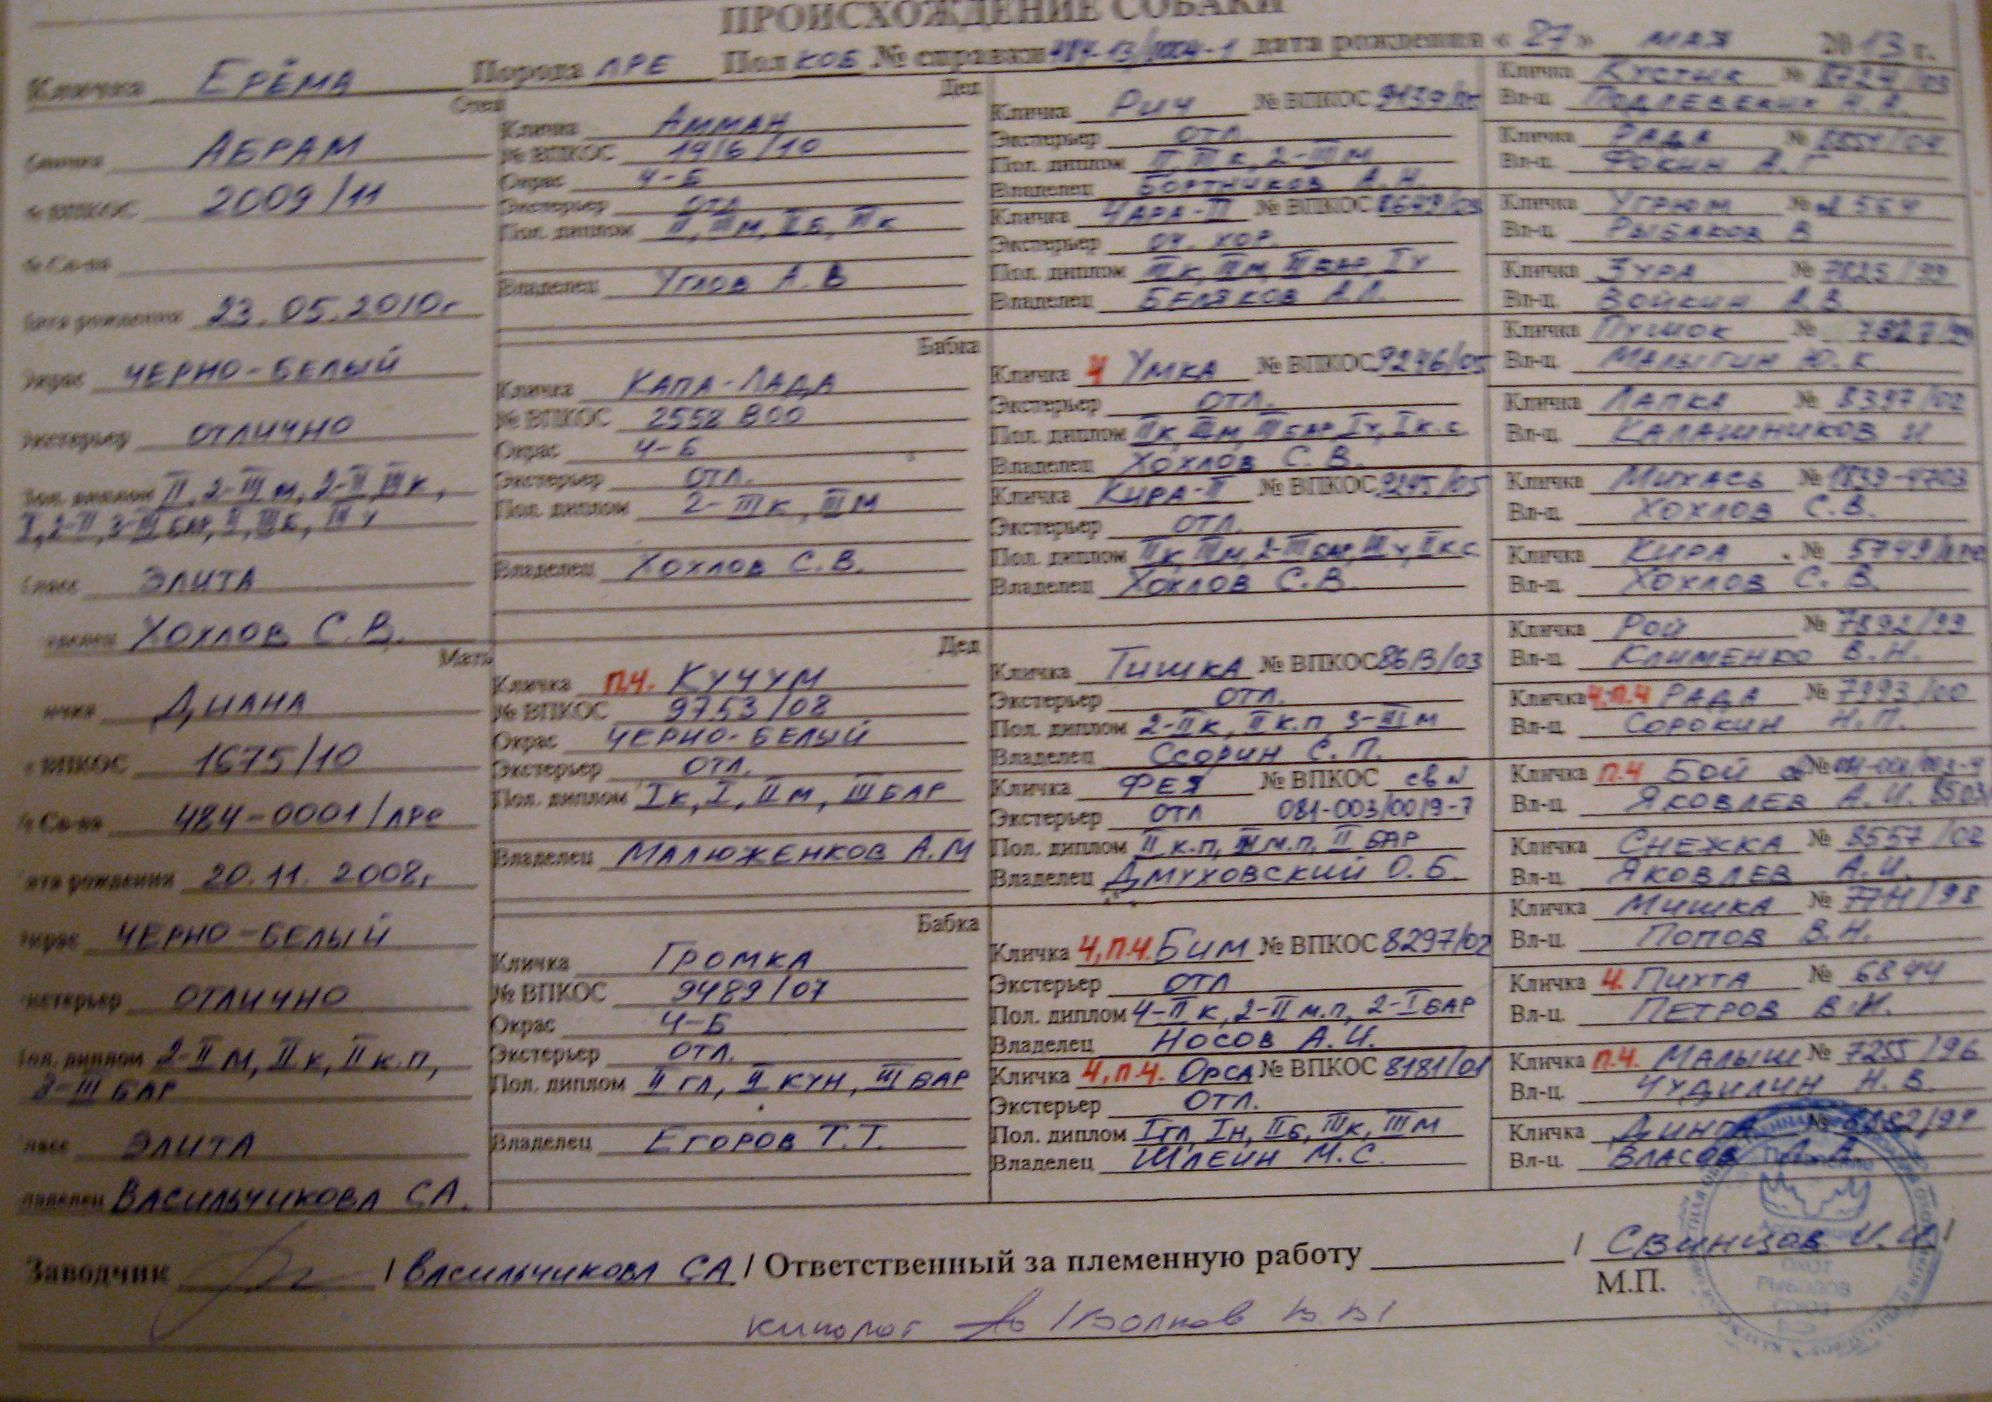 ПРОИСХОЖДЕНИЕ СОБАКИ
Кличка ЕРЁМА Порода ЛРЕ Пол КОБ № справки дата рождения « 27 » МАЯ 2013 г.
Отец
Кличка АБРАМ
№ ВПКОС 2009/11
№ Св-ва
Дата рождения 23.05.2010г
Окрас ЧЕРНО-БЕЛЫЙ
Экстерьер ОТЛИЧНО
Пол. диплом II, 2-III М, 2-II, III К,
I, 2-II, 3-III БАР, II, III Б, III У
Класс ЭЛИТА
Владелец ХОХЛОВ С.В.
Мать
Кличка ДИАНА
№ ВПКОС 1675/10
№ Св-ва 484-0001/ЛРЕ
Дата рождения 20.11. 2008г
Окрас ЧЕРНО-БЕЛЫЙ
Экстерьер ОТЛИЧНО
Пол. диплом 2-II М, II К, II К.П,
3-III БАР
Класс ЭЛИТА
Владелец ВАСИЛЬЧИКОВА С.А.
Дед
Кличка АММАН
№ ВПКОС 1916/10
Окрас Ч-Б
Экстерьер ОТЛ
Пол. диплом II, III М, II Б, III К
Владелец УГЛОВ А.В
Бабка
Кличка КАПА-ЛАДА
№ ВПКОС 2558 800
Окрас Ч-Б
Экстерьер ОТЛ.
Пол. диплом 2-III К, III М
Владелец ХОХЛОВ С.В.
Дед
Кличка П.Ч. КУЧУМ
№ ВПКОС 9753/08
Окрас ЧЕРНО-БЕЛЫЙ
Экстерьер ОТЛ.
Пол. диплом I К, I, II М, III БАР
Владелец МАЛЮЖЕНКОВ А.М
Бабка
Кличка ГРОМКА
№ ВПКОС 9489/07
Окрас Ч-Б
Экстерьер ОТЛ.
Пол. диплом II ГЛ, II КУН, III БАР
Владелец ЕГОРОВ Т.Т.
Кличка РИЧ № ВПКОС
Экстерьер ОТЛ.
Пол. диплом II, III К, 2-III М
Владелец БОРТНИКОВ А.Н.
Кличка ЧАРА-II № ВПКОС 8649/03
Экстерьер ОЧ. ХОР.
Пол. диплом III К, III М, III БАР, I У
Владелец БЕЛЯКОВ А.Л.
Кличка Ч УМКА № ВПКОС 9246/05
Экстерьер ОТЛ.
Пол. диплом II К, III М, III БАР, I У, I К.С
Владелец ХОХЛОВ С.В.
Кличка КИРА-II № ВПКОС 9245/05
Экстерьер ОТЛ.
Пол. диплом II К, III М, 2-III БАР, III У, II К.С
Владелец ХОХЛОВ С.В
Кличка ТИШКА № ВПКОС 8613/03
Экстерьер ОТЛ.
Пол. диплом 2-II К, II К.П, 3-III М
Владелец ССОРИН С.П.
Кличка ФЕЯ № ВПКОС СВ №
Экстерьер ОТЛ 081-003/0019-7
Пол. диплом II К.П, III М.П, II БАР
Владелец ДМУХОВСКИЙ О.Б.
Кличка Ч, П.Ч. БИМ № ВПКОС 8297/02
Экстерьер ОТЛ
Пол. диплом 4-II К, 2-II М.П, 2-I БАР
Владелец НОСОВ А.И.
Кличка Ч, П.Ч. ОРСА № ВПКОС 8181/01
Экстерьер ОТЛ.
Пол. диплом I ГЛ, I Н, II Б, III К, III М
Владелец ШЛЕИН М.С.
Кличка КУСТЫК № 8724/03
Вл-ц
Кличка РАДА № 8854/04
Вл-ц ФОКИН А.Г
Кличка УГРЮМ №
Вл-ц РЫБАКОВ В
Кличка ЗУРА № 7825/99
Вл-ц ВОЙКИН А.В.
Кличка ПУШОК № 7827/99
Вл-ц МАЛЫГИН Ю.К
Кличка ЛАПКА № 8397/02
Вл-ц КАЛАШНИКОВ И
Кличка МИХАСЬ № 1839-4703
Вл-ц ХОХЛОВ С.В.
Кличка КИРА № 5749
Вл-ц ХОХЛОВ С.В.
Кличка РОЙ № 7892/99
Вл-ц КЛИМЕНКО В.Н.
Кличка Ч, П.Ч РАДА № 7993/00
Вл-ц СОРОКИН Н.П.
Кличка П.Ч БОЙ №
Вл-ц ЯКОВЛЕВ А.И. 8503
Кличка СНЕЖКА № 8557/02
Вл-ц ЯКОВЛЕВ А.И.
Кличка МИШКА № 7711/98
Вл-ц ПОПОВ В.Н.
Кличка Ч. ПИХТА № 6844
Вл-ц ПЕТРОВ В.И.
Кличка П.Ч. МАЛЫШ № 7255/96
Вл-ц ЧУДИЛИН Н.В.
Кличка ДИНГА №
Вл-ц ВЛАСОВ
Заводчик / ВАСИЛЬЧИКОВА СА / Ответственный за племенную работу / СВИНЦОВ И.И /
М.П.
кинолог /Волков В.В/
ОХОТ
РЫБОЛОВ
СОЮЗ